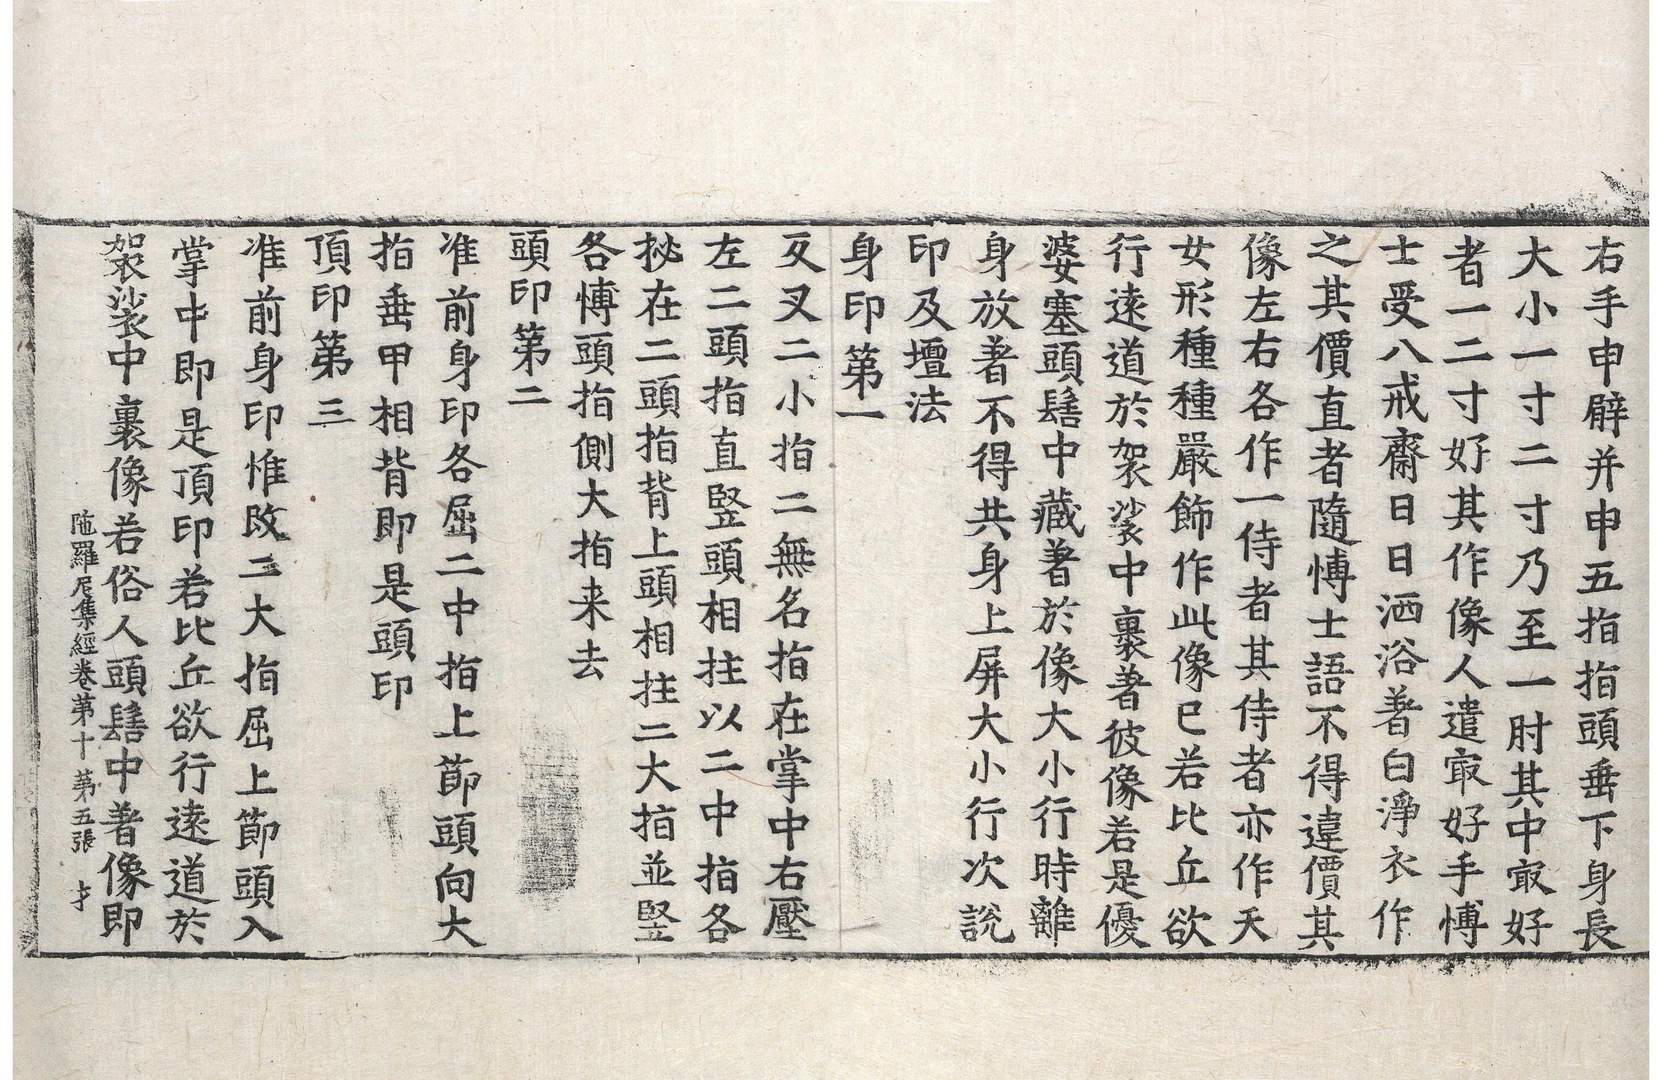 右手申臂并申五指指頭垂下身長
大小一寸二寸乃至一肘其中㝡好
者一二寸好其作像人遣㝡好手愽
士受八戒齋日日洒浴著白淨衣作
之其價直者隨愽士語不得違價其
像左右各作一侍者其侍者亦作天
女形種種嚴飾作此像已若比丘欲
行遠道於袈裟中裹著彼像若是優
婆塞頭髻中藏著於像大小行時離
身放著不得共身上屏大小行次說
印及壇法
身印第一
反叉二小指二無名指在掌中右壓
左二頭指直竪頭相拄以二中指各
拟在二頭指背上頭相拄二大指並竪
各愽頭指側大指来去
頭印第二
准前身印各屈二中指上節頭向大
指垂甲相背即是頭印
頂印第三
准前身印惟攺二大指屈上節頭入
掌中即是頂印若比丘欲行遠道於
袈裟中裹像若俗人頭髻中著像即
陁羅尼集經卷第十 第五張 才